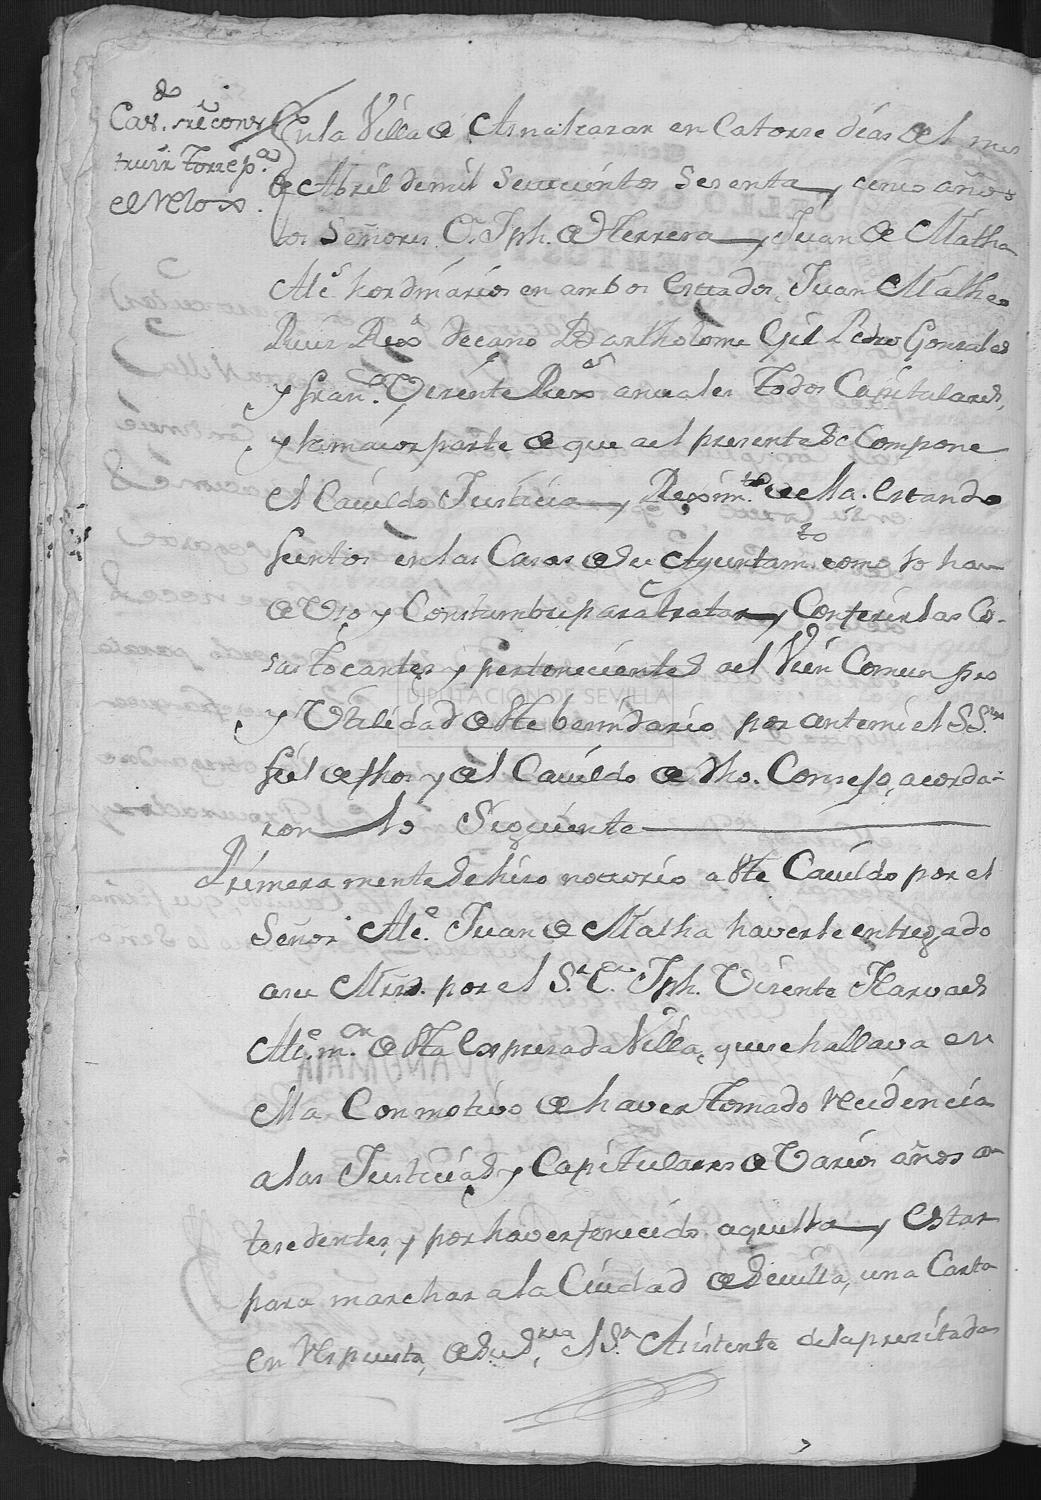 Cav.do sre cons
truir Torre p.a
el Relox.
En la Villa de Asnalcazar en Catorse dias del mes
de Abril de mil Setecientos Sesenta y cinco años
los Señores D. Jph. de Herrera y Juan de Matha
Alc.s hordinarios en ambos Estados, Juan Matheo
Ruiz Rex.or decano Bartholome Gil Pedro Gonsales
y Fran.co Vicente Rex.es anuales todos Capitulares,
y la maior parte de que al presente se Compone
el Cavildo Justicia y Reximt.o de ella. estando
juntos en las Casas de su Ayuntam.to como lo han
de Uso y Constumbre para tratar y Conferir las Co-
sas tocantes y pertenecientes al Vien Comun pro
y Utilidad de este besindario por ante mi el SS.no
fiel de fhos y del Cavildo de dho. Consejo, acorda-
ron lo Siguiente
Primeramente se hiso notorio a este Cavildo por el
Señor Alc.e Juan de Matha haverle entregado
a su Mrd. por el S.r D. Jph. Vicente Narvaes
Alc.e m.or de esta expresada Villa, que se hallava en
ella Con motivo de haver tomado residencia
a las Justicias y Capitulares de Varios años an
tesedentes, y por haver fenecido aquella y estar
para marchar a la Ciudad de Sevilla, una Carta
en respuesta, de su S.ria el S.r Asistente de la presitada
DIPUTACION DE SEVILLA